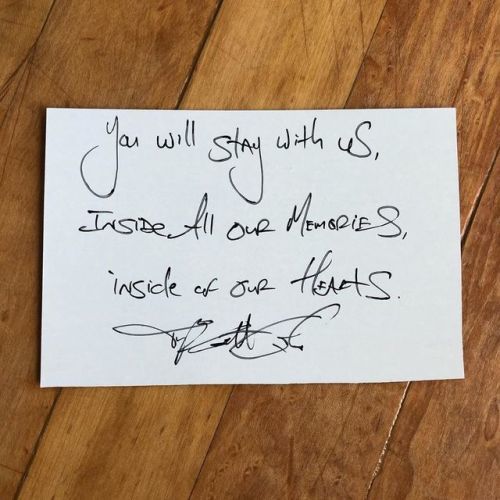 You will stay with us,
INSIDE All OUR MEMORIES,
inside of OUR HEARTS.